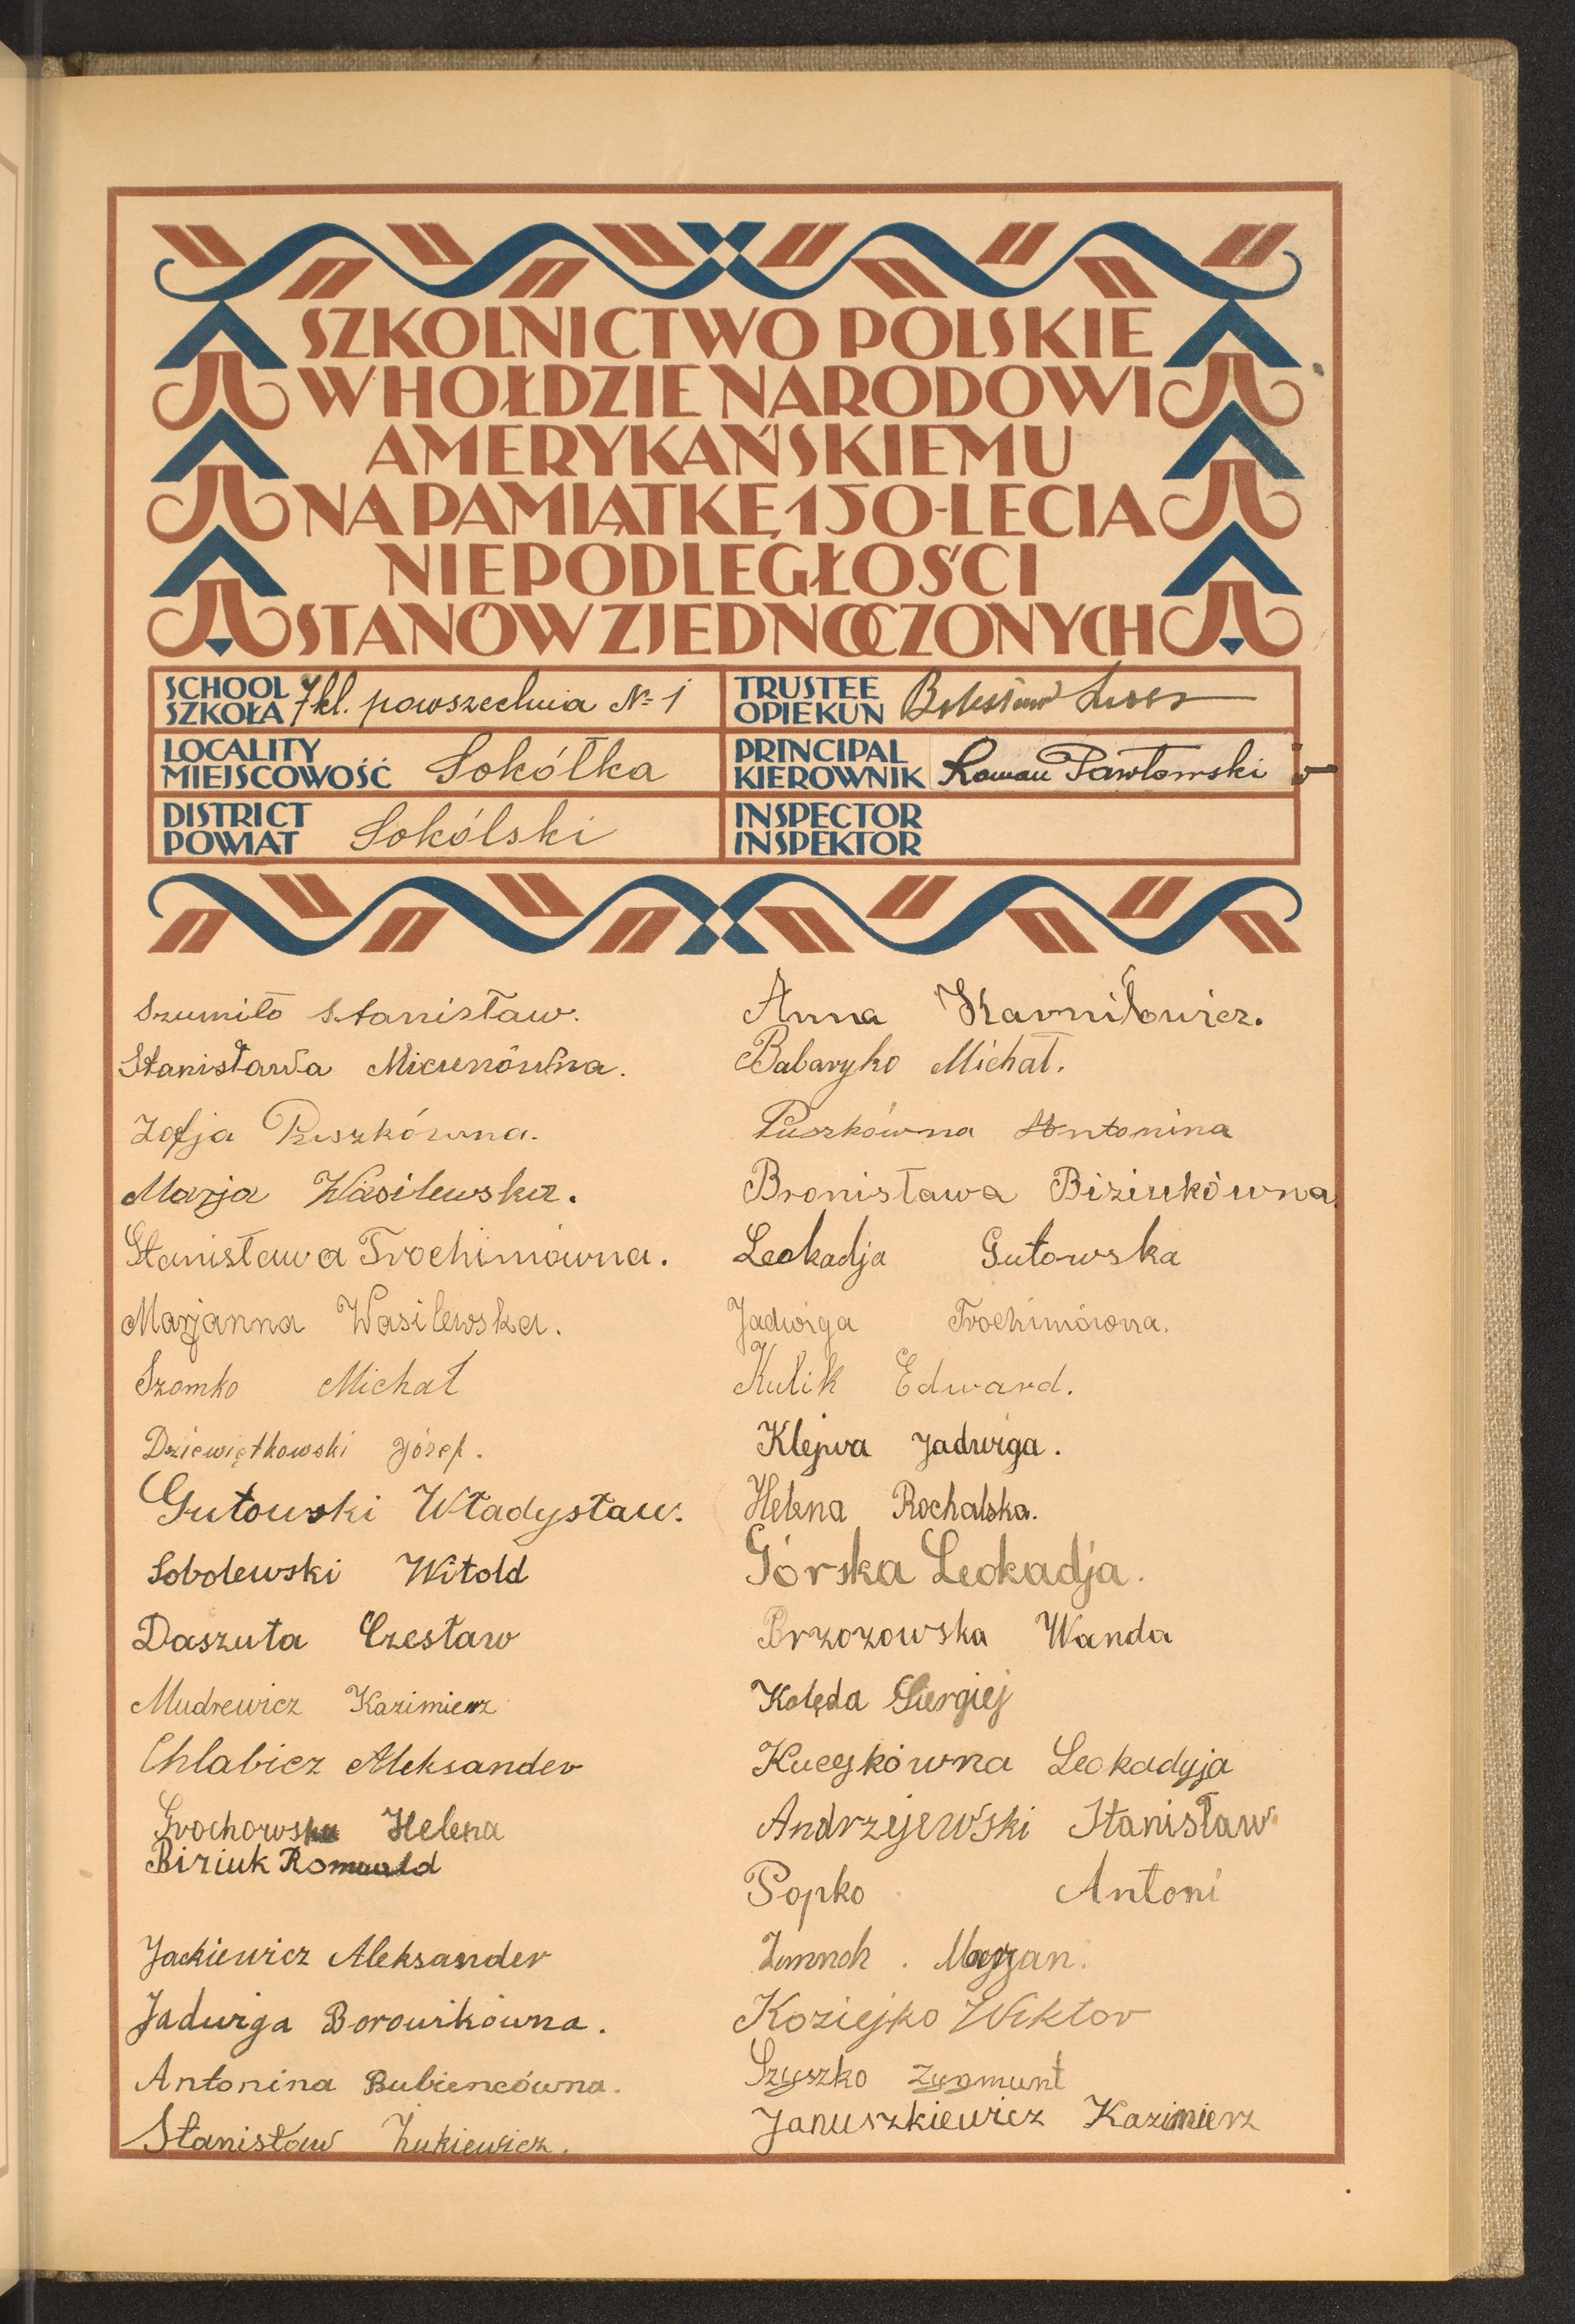 SZKOLNICTWO POLSKIE
W HOŁDZIE NARODOWI
AMERYKAŃSKIEMU
NA PAMIĄTKĘ 150-LECIA
NIEPODLEGŁOŚCI
STANÓW ZJEDNOCZONYCH
SCHOOL
SZKOŁA 7 kl. powszechna № 1
TRUSTEE
OPIEKUN Bolesław
LOCALITY
MIEJSCOWOŚĆ Sokółka
PRINCIPAL
KIEROWNIK Roman Pawłowski
DISTRICT
POWIAT Sokólski
INSPECTOR
INSPEKTOR
Szumiło Stanisław.
Stanisława Micunówna.
Zofja Puszkówna.
Marja Wasilewska.
Stanisława Trochimówna.
Marjanna Wasilewska.
Szomko Michał
Dziewiętkowski Józef.
Gutowski Władysław.
Sobolewski Witold
Daszuta Czesław
Mudrewicz Kazimierz
Chlabicz Aleksander
Grochowska Helena
Biziuk Romuald
Jackiewicz Aleksander
Jadwiga Borowikówna.
Antonina Bubiencówna.
Stanisław Żukiewicz.
Anna Karniłowicz.
Babaryko Michał.
Puszkówna Antonina
Bronisława Biziukówna
Leokadja Gutowska
Jadwiga Trochimówna.
Kulik Edward.
Klejwa Jadwiga.
Helena Rochalska.
Górska Leokadja.
Brzozowska Wanda
Kolęda Siergiej
Kucejkówna Leokadyja
Andrzejewski Stanisław
Popko Antoni
Marjan.
Koziejko Wiktor
Szyszko Zygmunt
Januszkiewicz Kazimierz